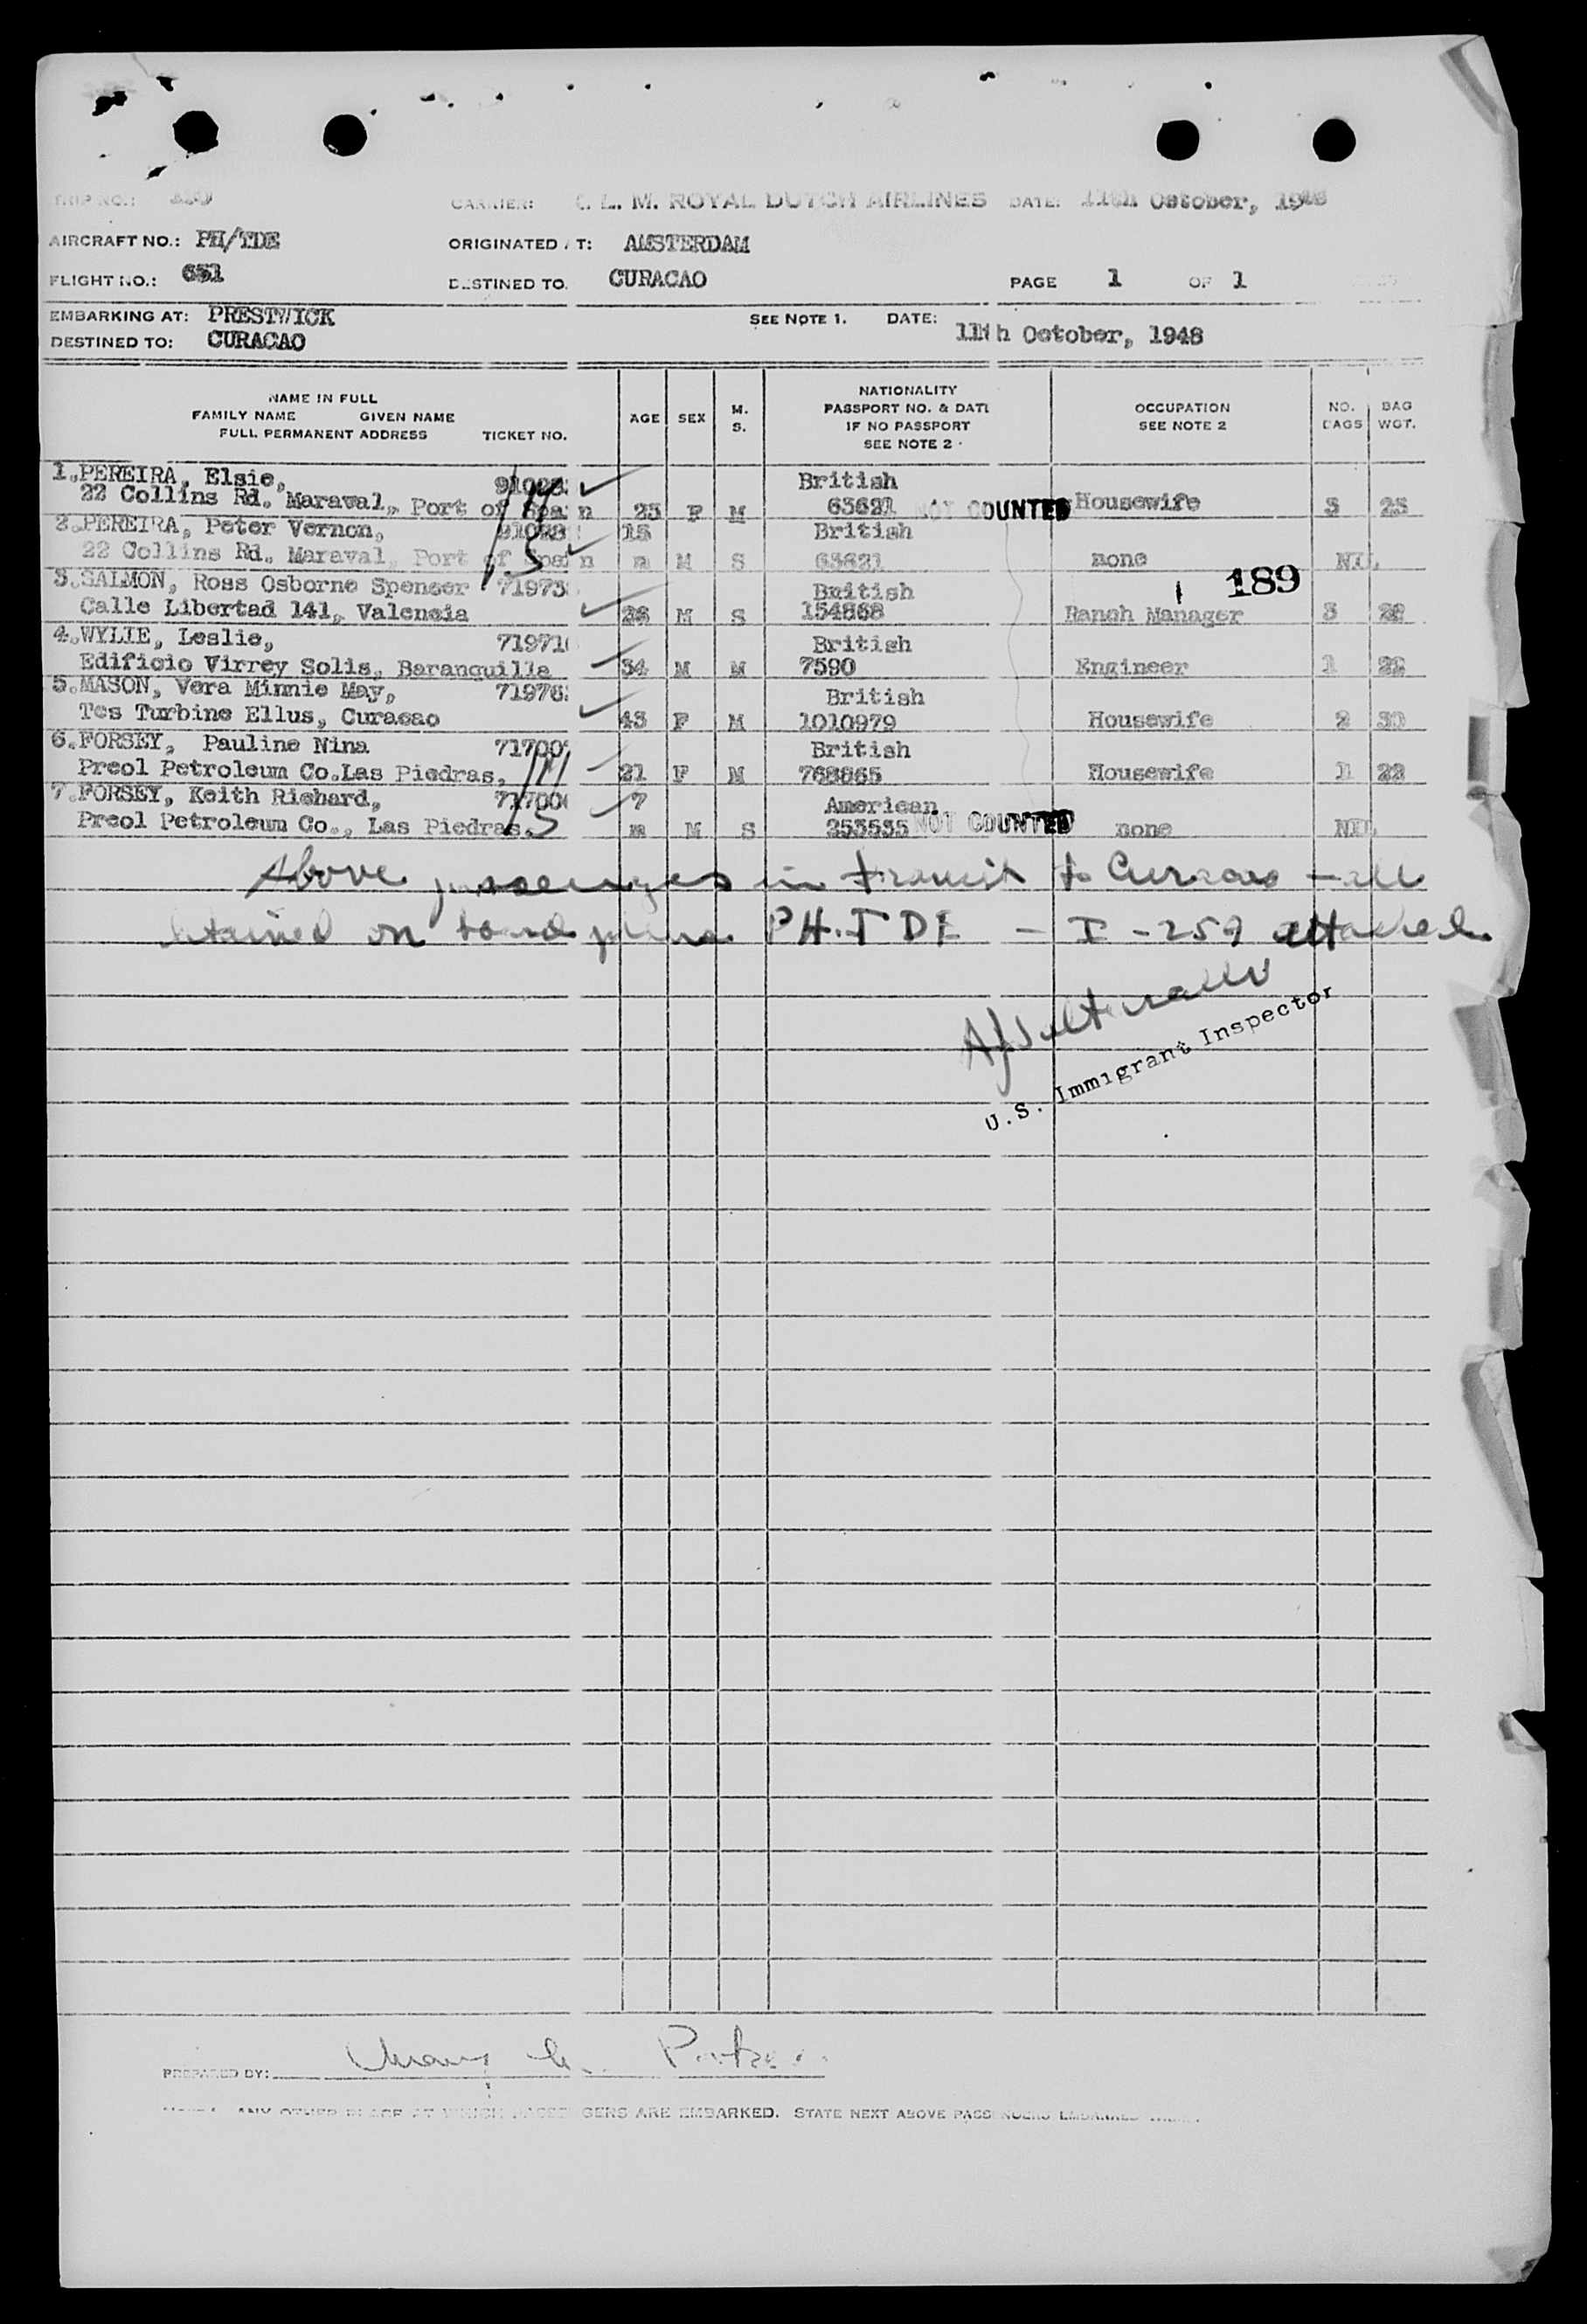 TRIP NO.:
CARRIER: L. M. ROYAL DUTCH AIRLINES DATE: 11th October, 1948
AIRCRAFT NO.: PH/TDE ORIGINATED AT: AMSTERDAM
FLIGHT NO.: 651 DESTINED TO. CURACAO PAGE 1 OF 1
EMBARKING AT: PRESTWICK SEE NOTE 1. DATE: 11th October, 1948
DESTINED TO: CURACAO
NAME IN FULL
FAMILY NAME GIVEN NAME
FULL PERMANENT ADDRESS TICKET NO.
AGE SEX M. S.
NATIONALITY
PASSPORT NO. & DATE
IF NO PASSPORT
SEE NOTE 2
OCCUPATION
SEE NOTE 2
NO. BAGS
BAG WGT.
1.PEREIRA, Elsie, British
22 Collins Rd. Maraval, Port of Spain F M 63621 NOT COUNTED Housewife 3 23
2.PEREIRA, Peter Vernon, British
22 Collins Rd. Maraval, Port of Spain m M S 63621 none NIL
189
3.SALMON, Ross Osborne Spencer 71973 British
Calle Libertad 141, Valencia M S 154868 Ranch Manager 3
4.WYLIE, Leslie, 71971 British
Edificio Virrey Solis, Baranquilla 34 M M 7590 Engineer 1
5.MASON, Vera Minnie May, 71976 British
Tos Turbine Ellus, Curacao 43 F M 1010979 Housewife 2 30
6.FORSEY, Pauline Nina 71700 British
Preol Petroleum Co.Las Piedras, 21 F M 768865 Housewife 1 22
7.FORSEY, Keith Richard, 71700 7 American
Preol Petroleum Co., Las Piedras. m M S 253535 NOT COUNTED none NIL
Above passengers in transit to Curacao - all
on board plane PH-TDE - I-259 attached
U.S. Immigrant Inspector
PREPARED BY:
ANY OTHER PLACE AT WHICH PASSENGERS ARE EMBARKED. STATE NEXT ABOVE PASSENGERS EMBARKED